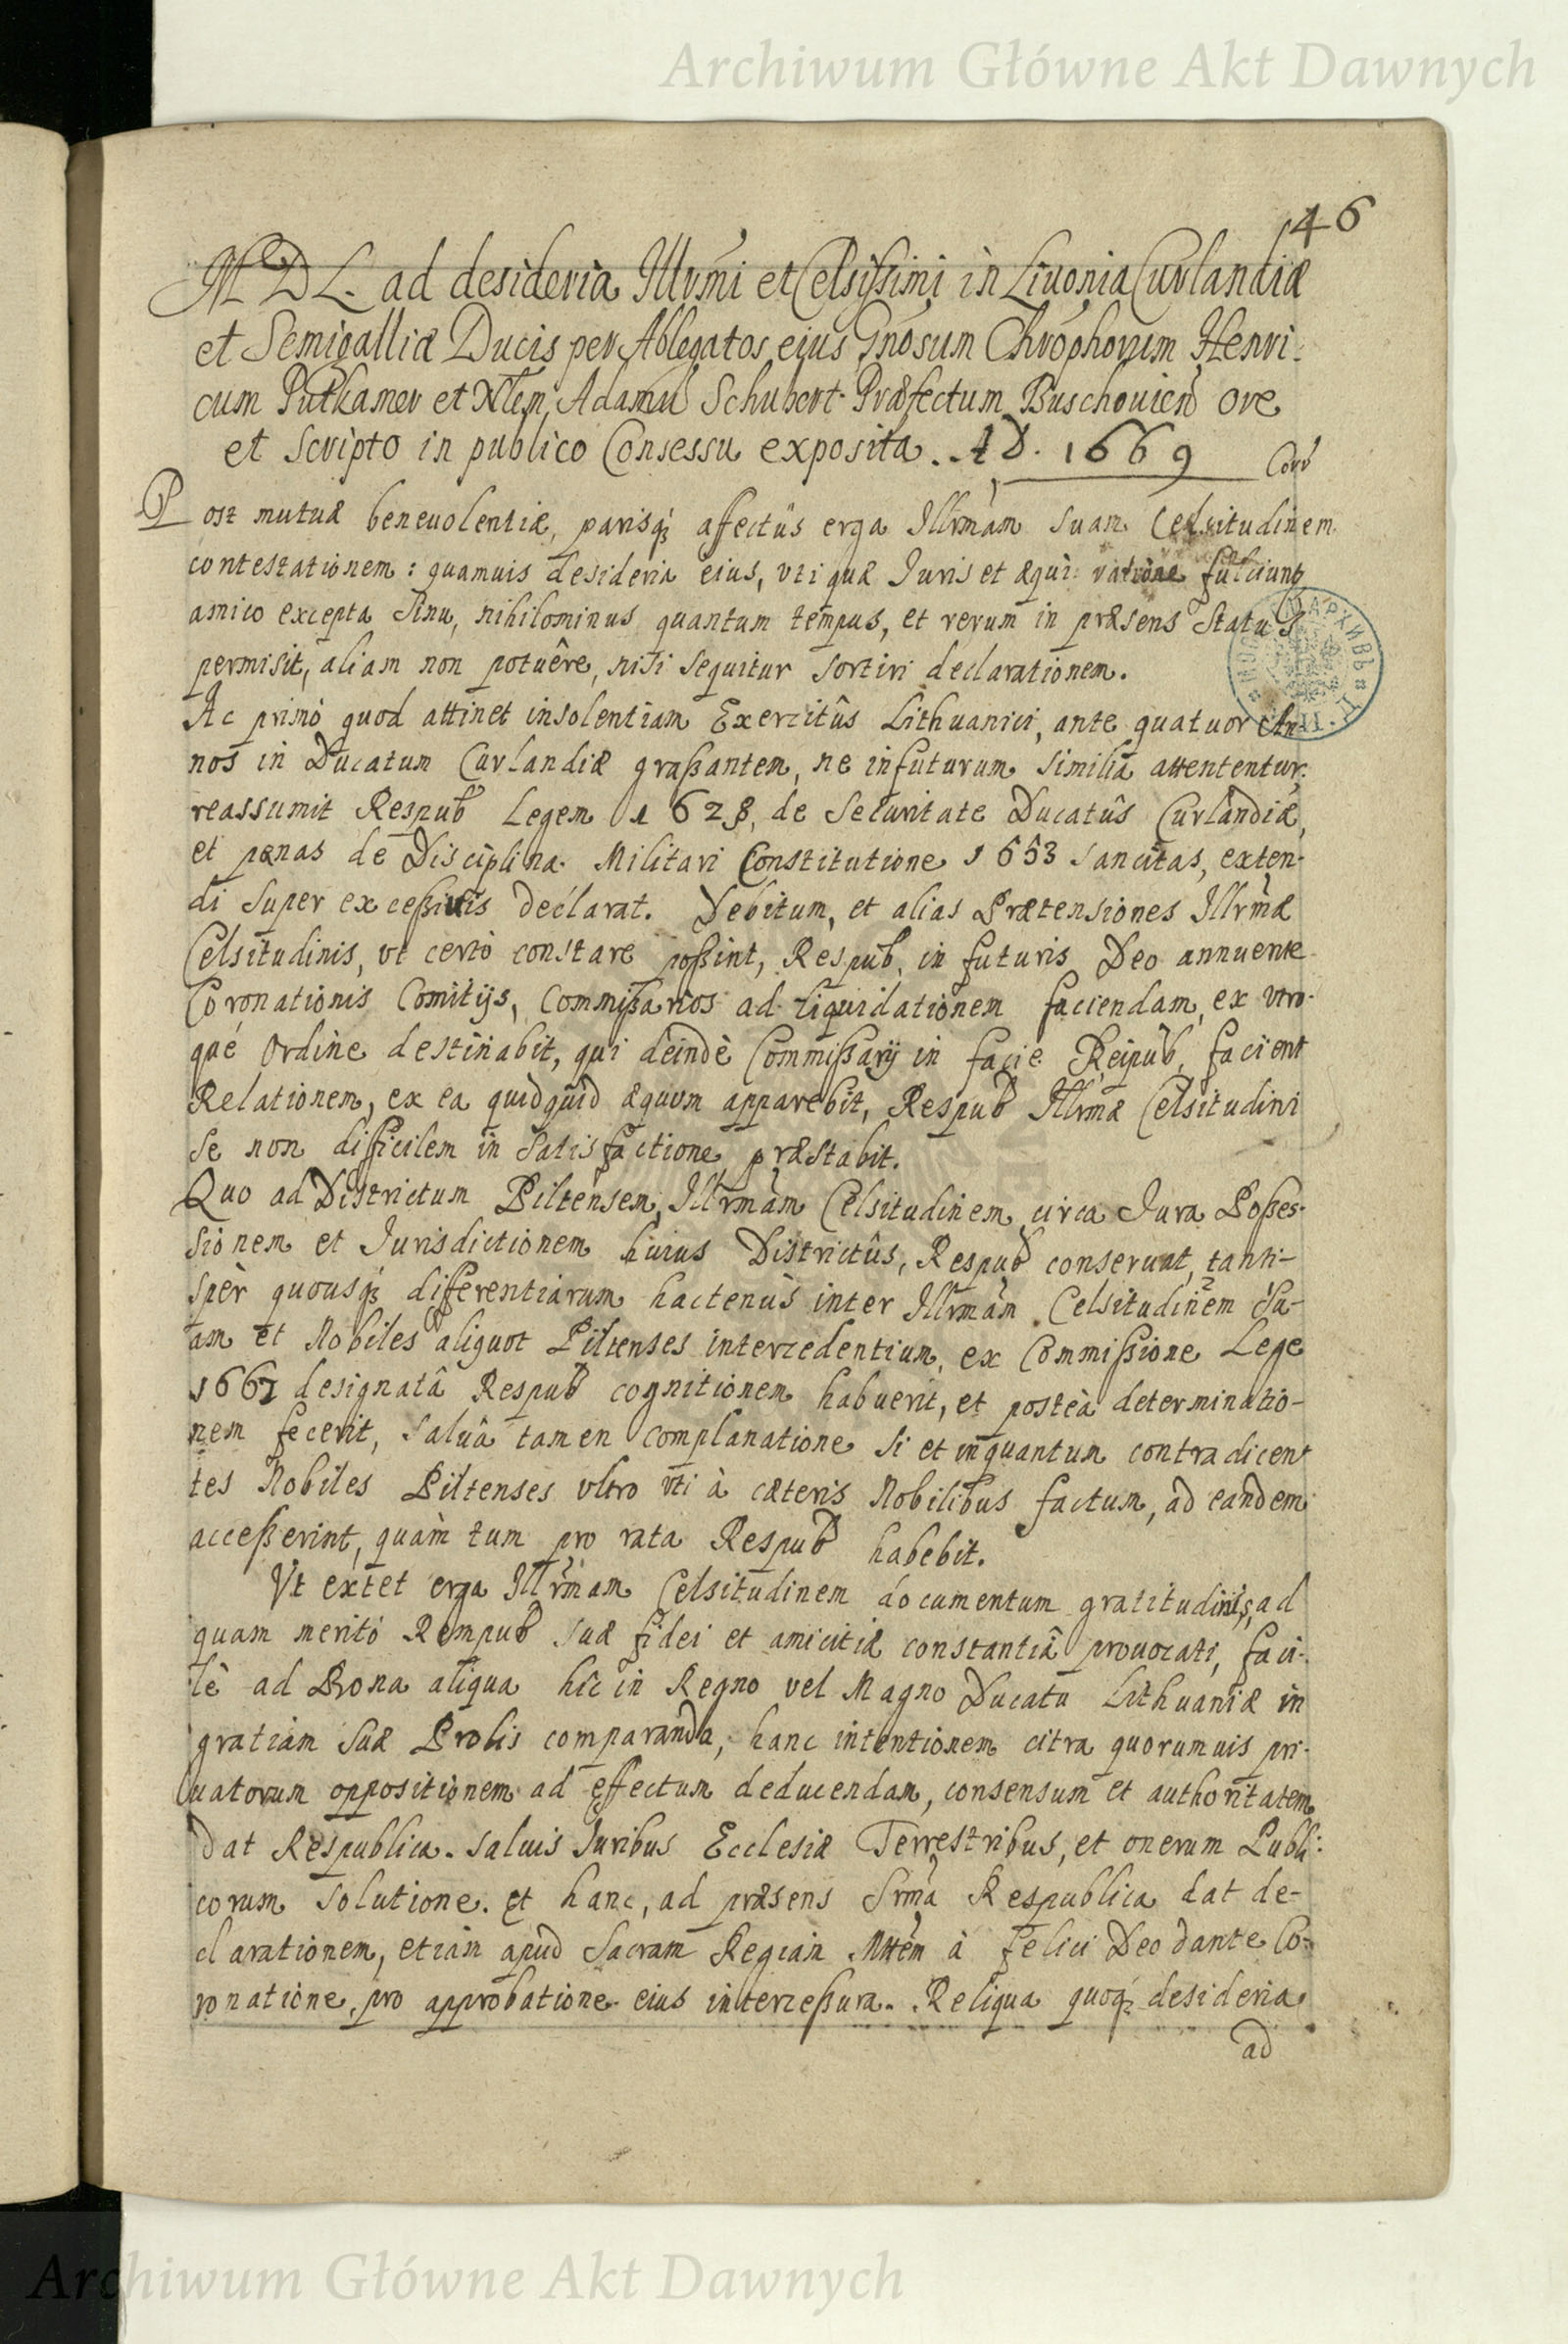 Archiwum Główne Akt Dawnych
46
M D L. ad desideria Illrmi et Celsißimi in Liuonia Curlandiæ
et Semigalliæ Ducis per Ablegatos eius Gnosum Chrophorum Henri-
cum Putkamer et Adamū Schubert Præfectum Buschouien ore
et scripto in publico Consessu exposita. A D. 1669
Post mutuæ beneuolentiæ, parisq; affectûs erga Illrmam suam Celsitudinem
contestationem: quamuis desideria eius, vti quæ Juris et æqui ratione fulciunt
amico excepta sinu, nihilominus quantum tempus, et rerum in præsens status
permisit, aliam non potuêre, nisi sequitur sortiri declarationem.
Ac primò quod attinet insolentiam Exercitûs Lithuanici, ante quatuor An-
nos in Ducatum Curlandiæ graßantem, ne infuturum similia attententur:
reassumit Respub Legem 1628, de Securitate Ducatûs Curlandiæ,
et pænas de Disciplina Militari Constitutione 1653 sancitas, exten-
di super exceßiuis declarat. Debitum, et alias Prætensiones Illrmæ
Celsitudinis, vt certò constare poßint, Respub, in futuris Deo annuente
Coronationis Comitijs, Commißarios ad liquidationem faciendam, ex vtro-
que Ordine destinabit, qui deindè Commißarij in facie Reipub, facient
Relationem, ex ea quidquid æquum apparebit, Respub Illrmæ Celsitudini
se non difficilem in Satisfactione præstabit.
Quo ad Districtum Piltensem, Illrmam Celsitudinem circa Jura Poßes-
sionem et Jurisdictionem huius Districtûs, Respub conseruat, tanti-
spèr quousq; differentiarum hactenùs inter Illrmam Celsitudinem Su-
am et Nobiles aliquot Piltenses intercedentium, ex Commißione Lege
1667 designatâ Respub cognitionem habuerit, et posteà determinatio-
nem fecerit, saluâ tamen complanatione si et inquantum contradicen
tes Nobiles Piltenses vltro vti à cæteris Nobilibus factum, ad eandem
acceßerint, quàm tum pro rata Respub habebit.
Vt extet erga Illrmam Celsitudinem documentum gratitudinis, ad
quam meritò Rempub suæ fidei et amicitiæ constantiâ prouocati, faci-
lè ad Bona aliqua hîc in Regno vel Magno Ducatu Lithuaniæ in
gratiam suæ Prolis comparanda, hanc intentionem citra quorumuis pri-
uatorum oppositionem ad effectum deducendam, consensum et authoritatem
dat Respublica. saluis Juribus Ecclesiæ Terrestribus, et onerum Publi-
corum solutione. Et hanc, ad præsens Srma Respublica dat de-
clarationem, etiam apud Sacram Regiam Mttem à felici Deo dante Co-
ronatione, pro approbatione eius interceßura. Reliqua quoq; desideria
ad
Archiwum Główne Akt Dawnych